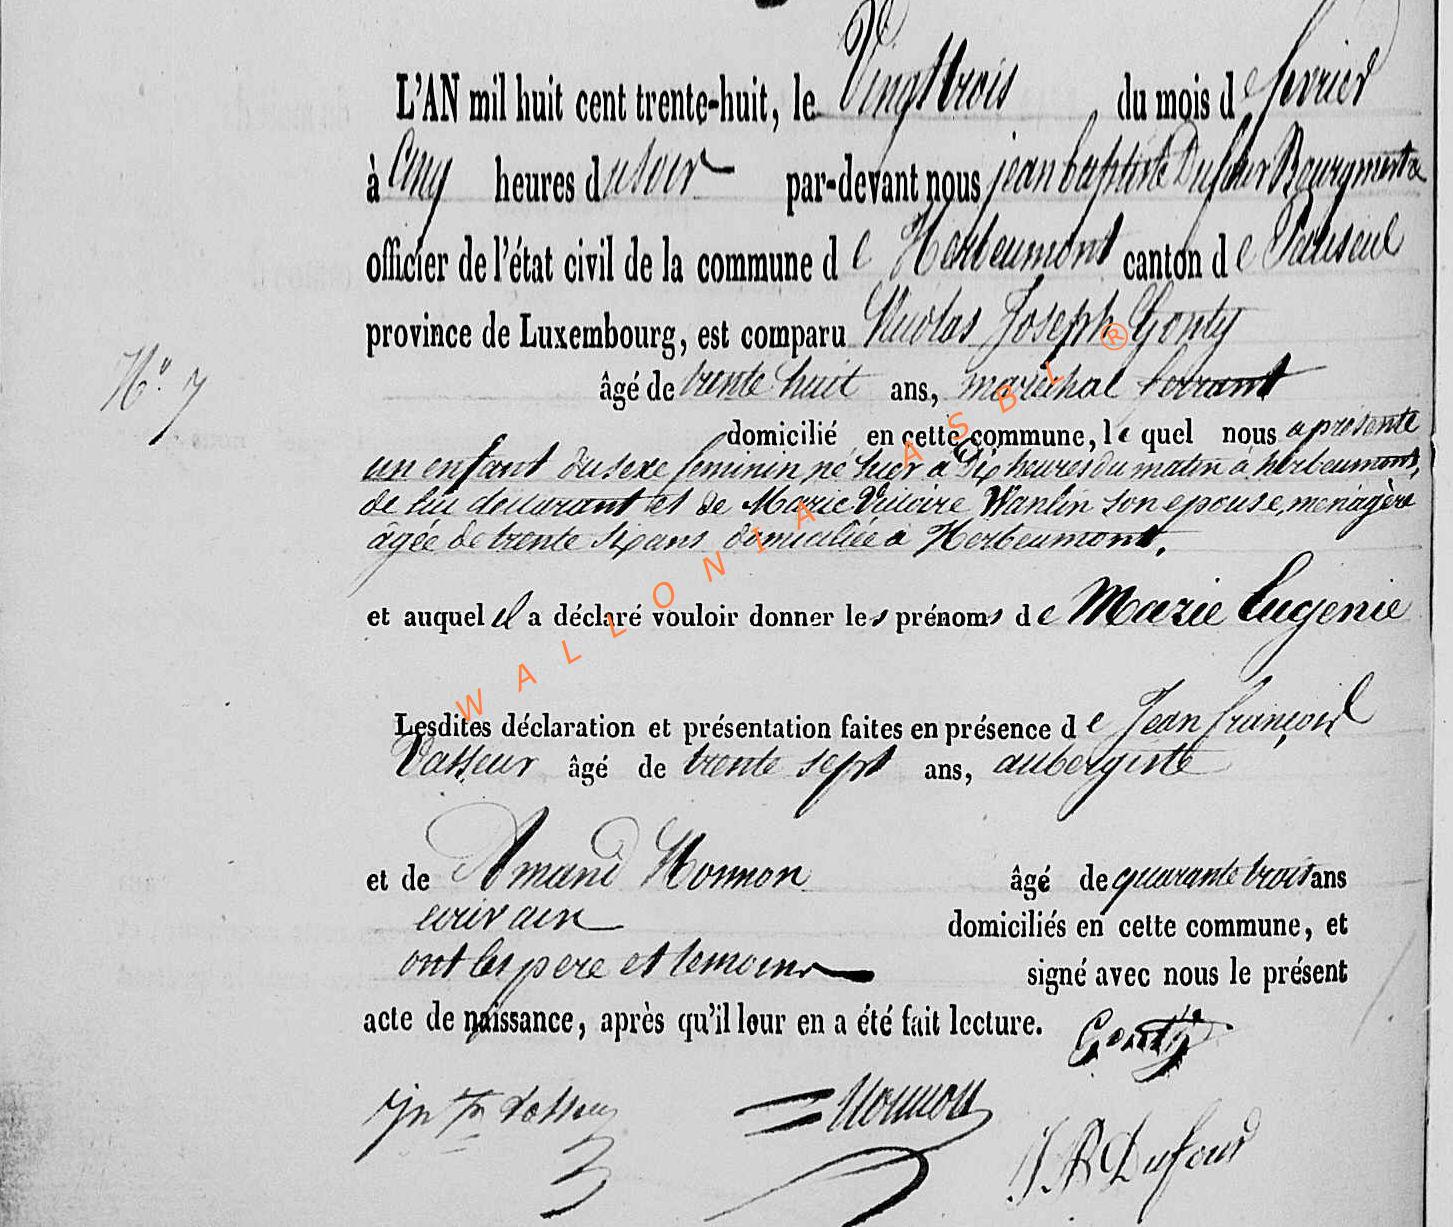 L'AN mil huit cent trente-huit, le Vingt trois du mois de fevrier
à Cinq heures du soir par-devant nous jean baptiste Dufour Bourgmestre
officier de l'état civil de la commune de Herbeumont canton de Paliseul
province de Luxembourg, est comparu Nicolas Joseph Gonty
N° 7
âgé de trente huit ans, maréchal ferrant
domicilié en cette commune, le quel nous a présenté
un enfant du sexe feminin, né hier a Six heures du matin à herbeumont,
de lui déclarant et de Marie Victoire Wanlin son epouse, menagère
âgée de trente Six ans domiciliée à Herbeumont.
et auquel il a déclaré vouloir donner les prénoms de Marie Eugenie
Lesdites déclaration et présentation faites en présence de Jean françois
Vasseur âgé de trente sept ans, aubergiste
et de Amand Monnon âgé de quarante trois ans
ecrivain domiciliés en cette commune, et
ont les pere et temoins signé avec nous le présent
acte de naissance, après qu'il leur en a été fait lecture. Gonty
Vasseur Monnon
J B Dufour
WALLONIA ASBL ®